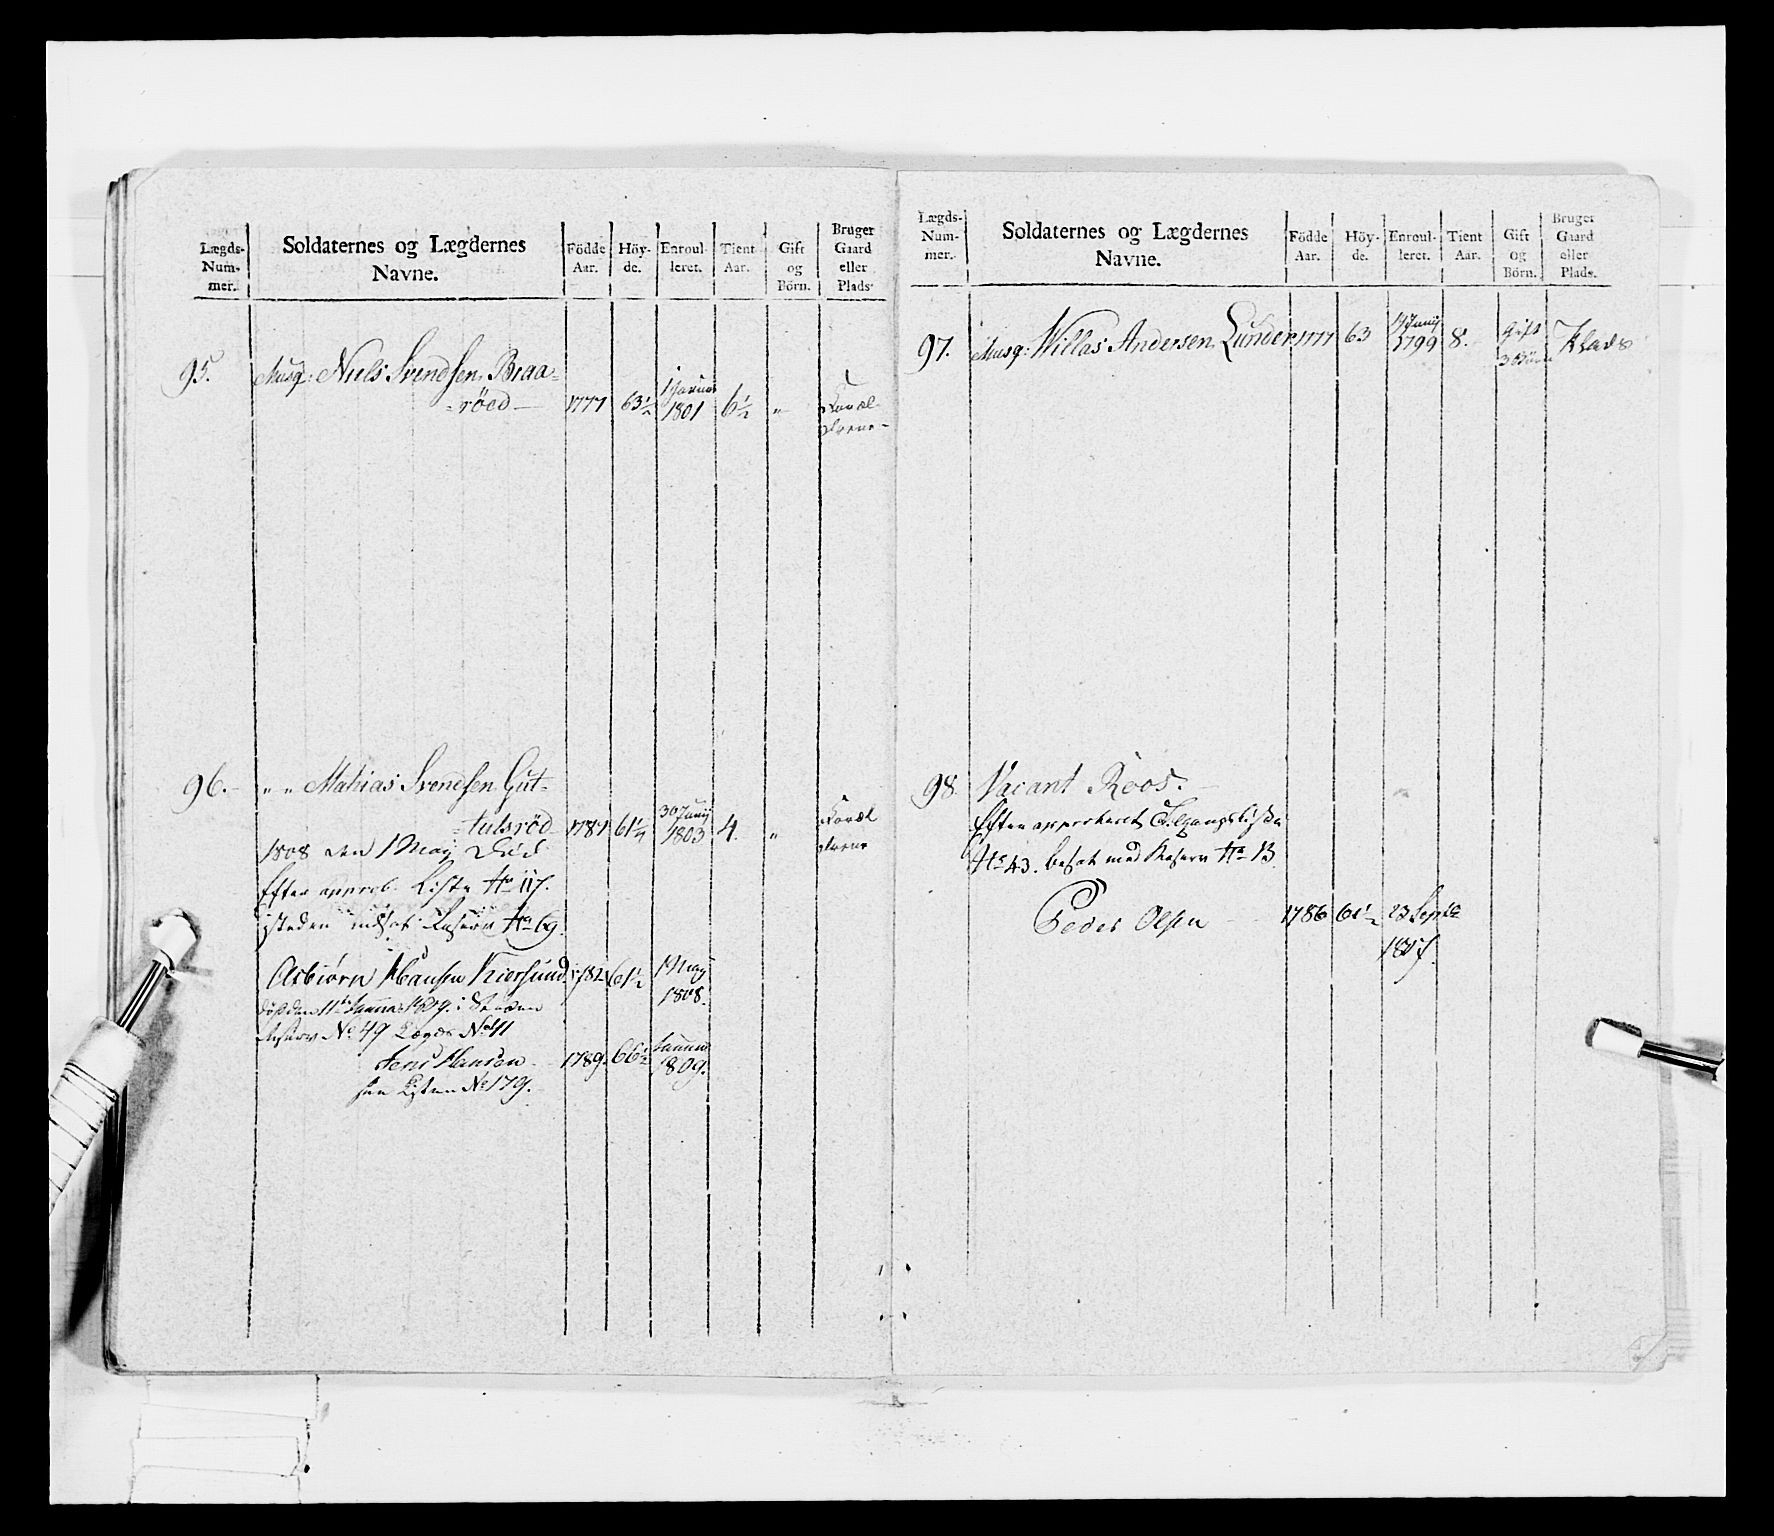 Lægds-
Num-
mer.
Soldaternes og Lægdernes
Navne.
Födde
Aar.
Höy-
de.
Enroul-
leret.
Tient
Aar.
Gift
og
Börn.
Bruger
Gaard
eller
Plads.
95.
Musq: Niels Svendsen Braa-
röed
1777
63½
1801
6½
"
96.
" " Mathias Svendsen Gut-
tulsröd
1781
61¼
30 Junij
1803
4.
"
1808 den 1 May Död
Efter approb. Liste No 117.
isteden indsat Reserv No 69.
Asbiörn Hansen Kiersund
1782
61½
1 May
1808.
No 49 Lægds No 41
Jens Hansen
1789.
66½
1809.
No 179.
Lægds-
Num-
mer.
Soldaternes og Lægdernes
Navne.
Födde
Aar.
Höy-
de.
Enroul-
leret.
Tient
Aar.
Gift
og
Börn.
Bruger
Gaard
eller
Plads.
97.
Musq: Willas Andersen Lunder
1777
63
Junij
1799
8.
Gift
3 Börn
Plads
98
Vacant Roos.
Efter approberet Afgangsliste
No 43. besat med Reserv No 13
Peder Olsen
1786
61½
23 Septbr
1807.